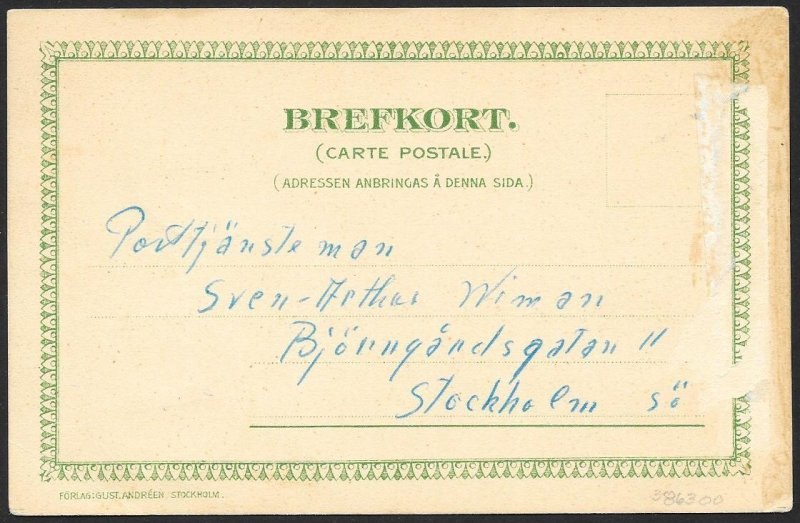 BREFKORT.
(CARTE POSTALE.)
(ADRESSEN ANBRINGAS Å DENNA SIDA.)
Posttjänsteman
Sven-Arthur Wiman
Björngårdsgatan 11
Stockholm Sö
FÖRLAG: GUST. ANDRÉEN STOCKHOLM.
386300